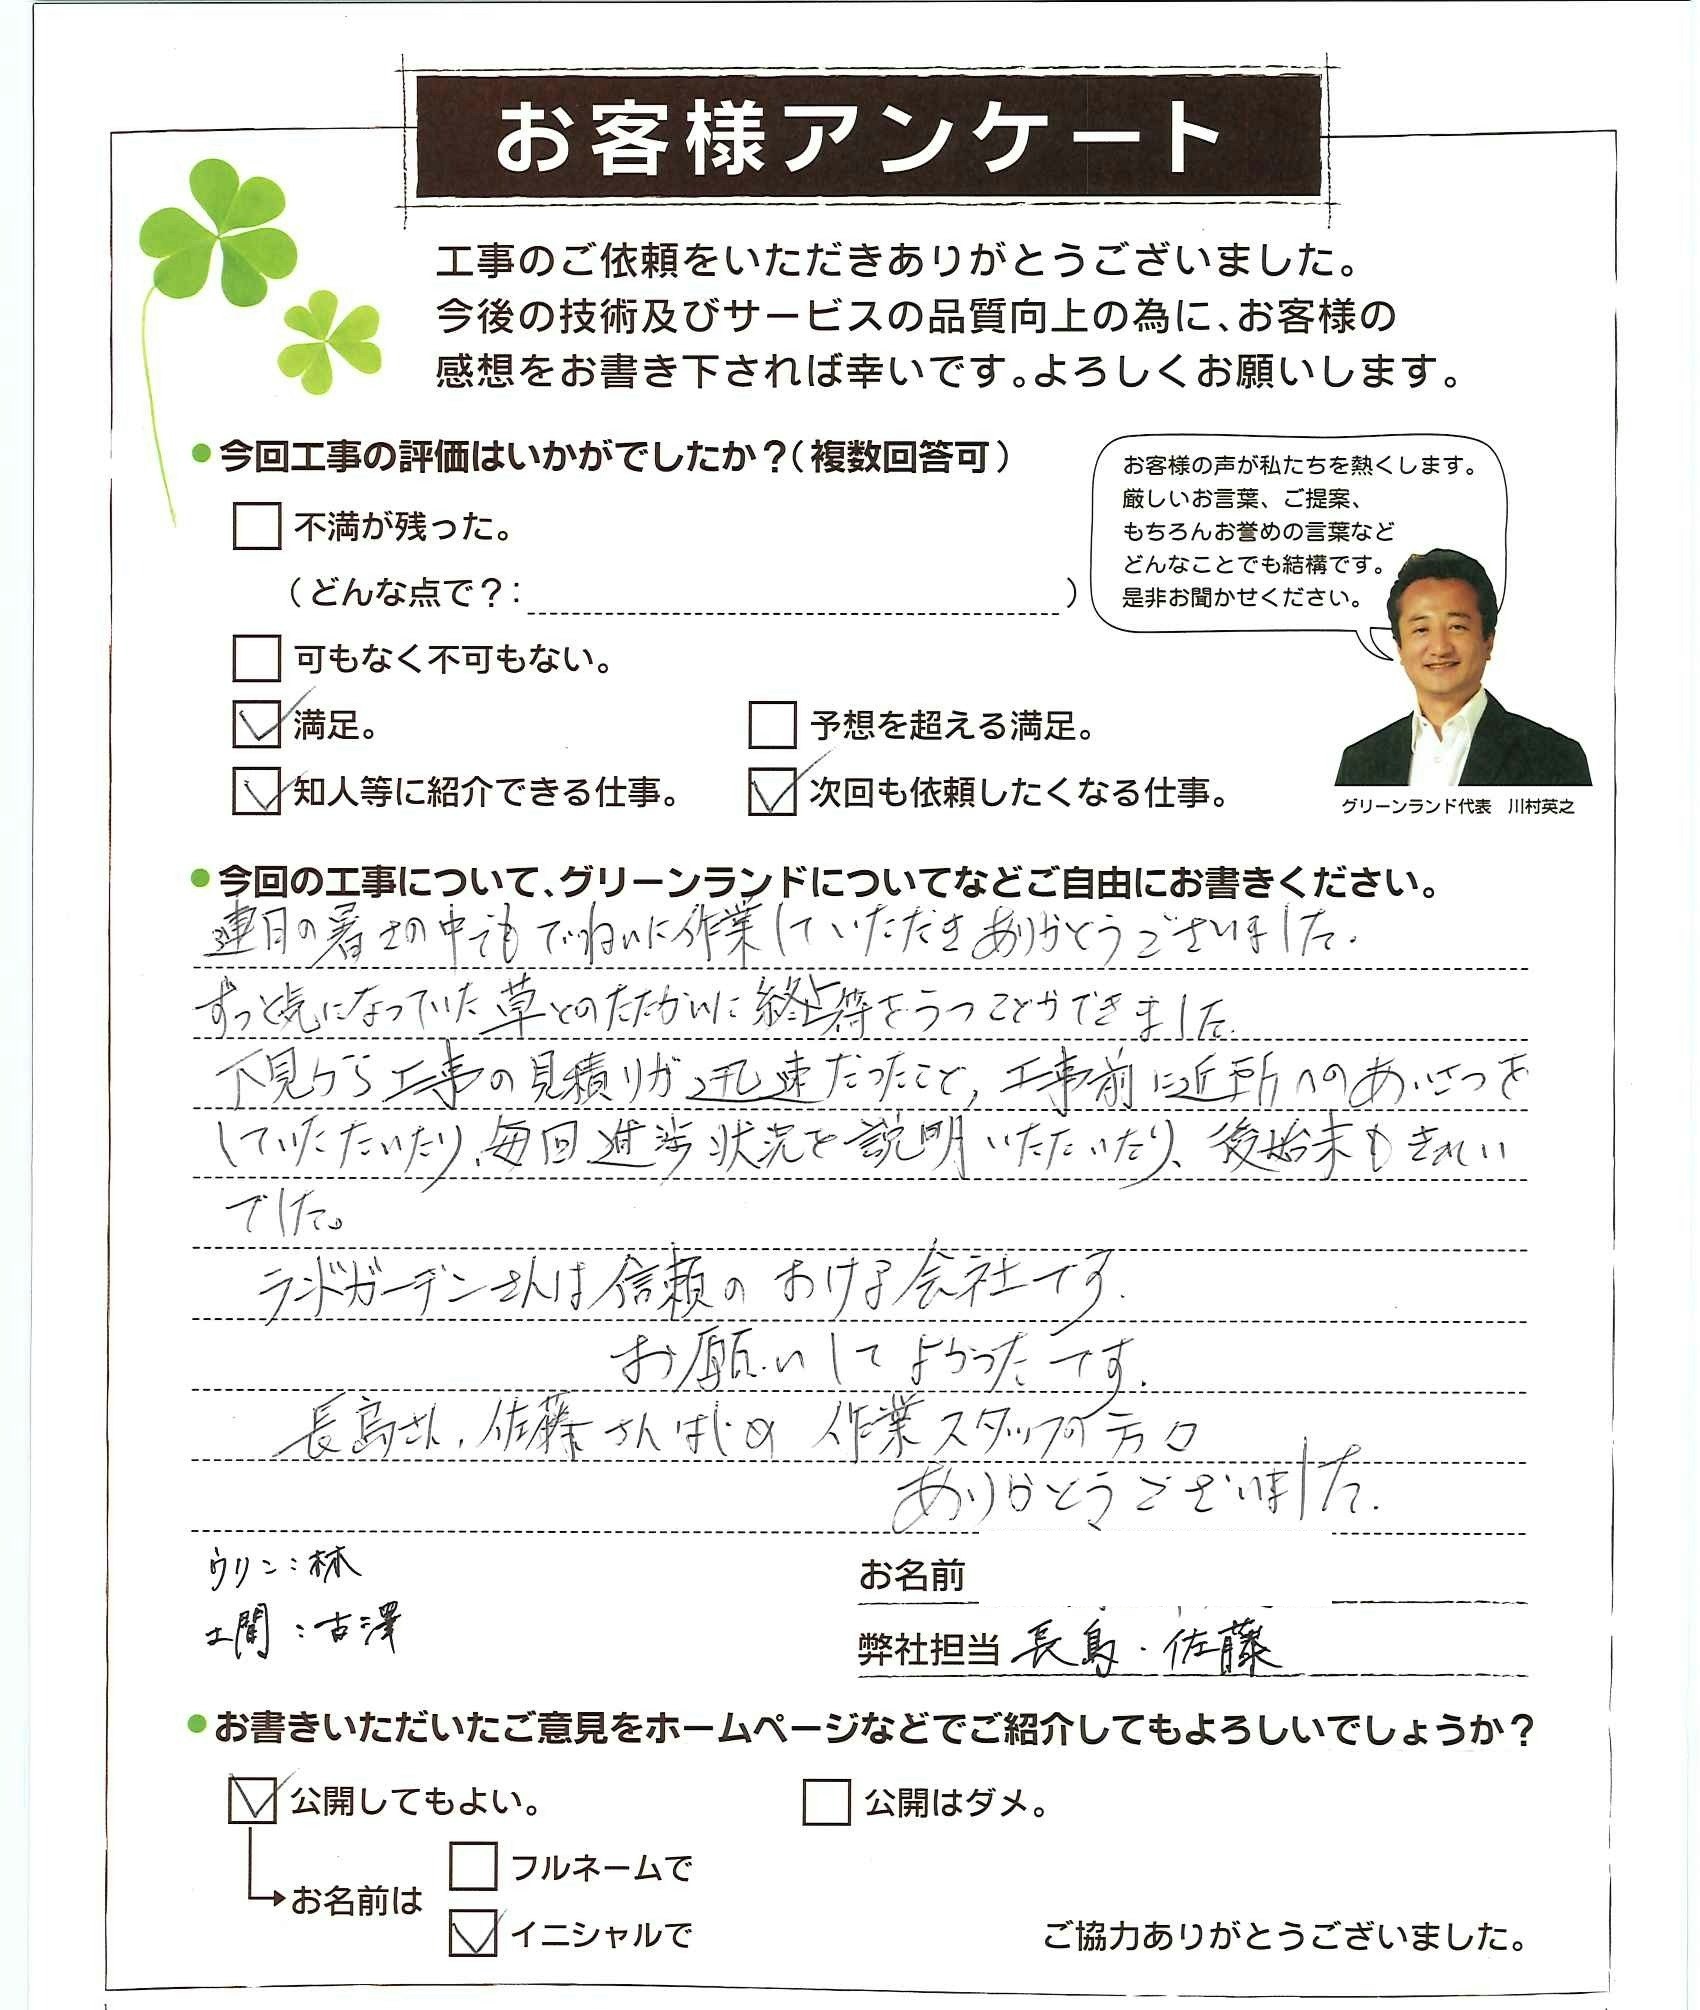 お客様アンケート
工事のご依頼をいただきありがとうございました。
今後の技術及びサービスの品質向上の為に、お客様の
感想をお書き下されば幸いです。よろしくお願いします。
●今回工事の評価はいかがでしたか？（複数回答可）
不満が残った。
（どんな点で？： ）
可もなく不可もない。
満足。
予想を超える満足。
知人等に紹介できる仕事。
次回も依頼したくなる仕事。
お客様の声が私たちを熱くします。
厳しいお言葉、ご提案、
もちろんお誉めの言葉など
どんなことでも結構です。
是非お聞かせください。
グリーンランド代表　川村英之
●今回の工事について、グリーンランドについてなどご自由にお書きください。
連日の暑さの中でも ていねいに作業していただき ありがとうございました。
ずっと気になっていた草とのたたかいに 終止符をうつことができました。
下見から工事の見積りが迅速だったこと、工事前に近所へのあいさつを
していただいたり、毎回進渉状況を説明いただいたり、後始末もきれい
でした。
ランドガーデンさんは信頼の おける会社です。
お願いして よかったです。
長島さん、佐藤さんはじめ 作業スタッフの方々
ありがとうございました。
ウリン：林
土間：古澤
お名前
弊社担当 長島・佐藤
●お書きいただいたご意見をホームページなどでご紹介してもよろしいでしょうか？
公開してもよい。
公開はダメ。
お名前は
フルネームで
イニシャルで
ご協力ありがとうございました。